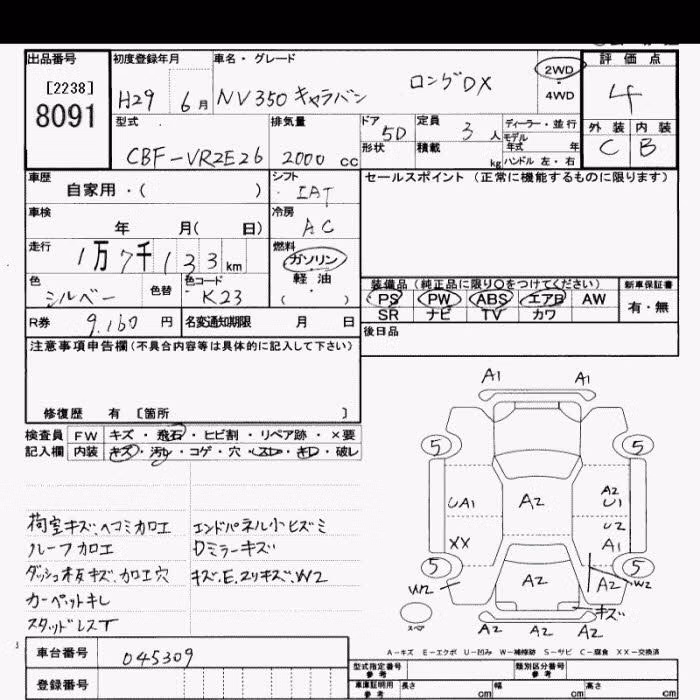 出品番号 初度登録年月 車名・グレード 評価点
[2238]
8091
H29 6月 NV350 キャラバン ロングDX 2WD ・ 4WD 4
外装 内装
C B
型式 排気量 ドア 定員 ディーラー・並行
CBF-VR2E26 2000 cc 5D 3人 モデル年式 年
形状 積載 kg ハンドル 左・右
車歴 シフト セールスポイント (正常に機能するものに限ります)
自家用・( ) IAT
車検 冷房
年 月( 日) AC
走行 燃料
1万7千133km ガソリン
軽油
( )
色 色替 色コード
シルバー K23
装備品 (純正品に限り○をつけてください) 新車保証書
PS PW ABS エアB AW 有・無
SR ナビ TV カワ
R券 9,160 円 名変通知期限 月 日 後日品
注意事項申告欄 (不具合内容等は具体的に記入して下さい)
修復歴 有 〔箇所 〕
検査員 FW キズ・飛石・ヒビ割・リペア跡・×要
記入欄 内装 キズ・汚レ・コゲ・穴・スレ・キレ・破レ
荷室キズ、ヘコミカロエ エンドパネル小ヒズミ
ルーフカロエ Dミラーキズ
ダッシュ板キズ、カロエ穴 キズ、E、スリキズ、W2
カーペットキレ
スタッドレスT
A1 A1
5 5
UA1 A2 A2 U1
U2
XX A1
5 5
W2 A2 A2 W2
キズ
スペア A2 A2 A2
A-キズ E-エクボ U-凹み W-補修跡 S-サビ C-腐食 XX-交換済
車台番号 045309
型式指定番号 参考 類別区分番号 参考
登録番号
車庫証明用 参考 長さ cm 幅 cm 高さ cm